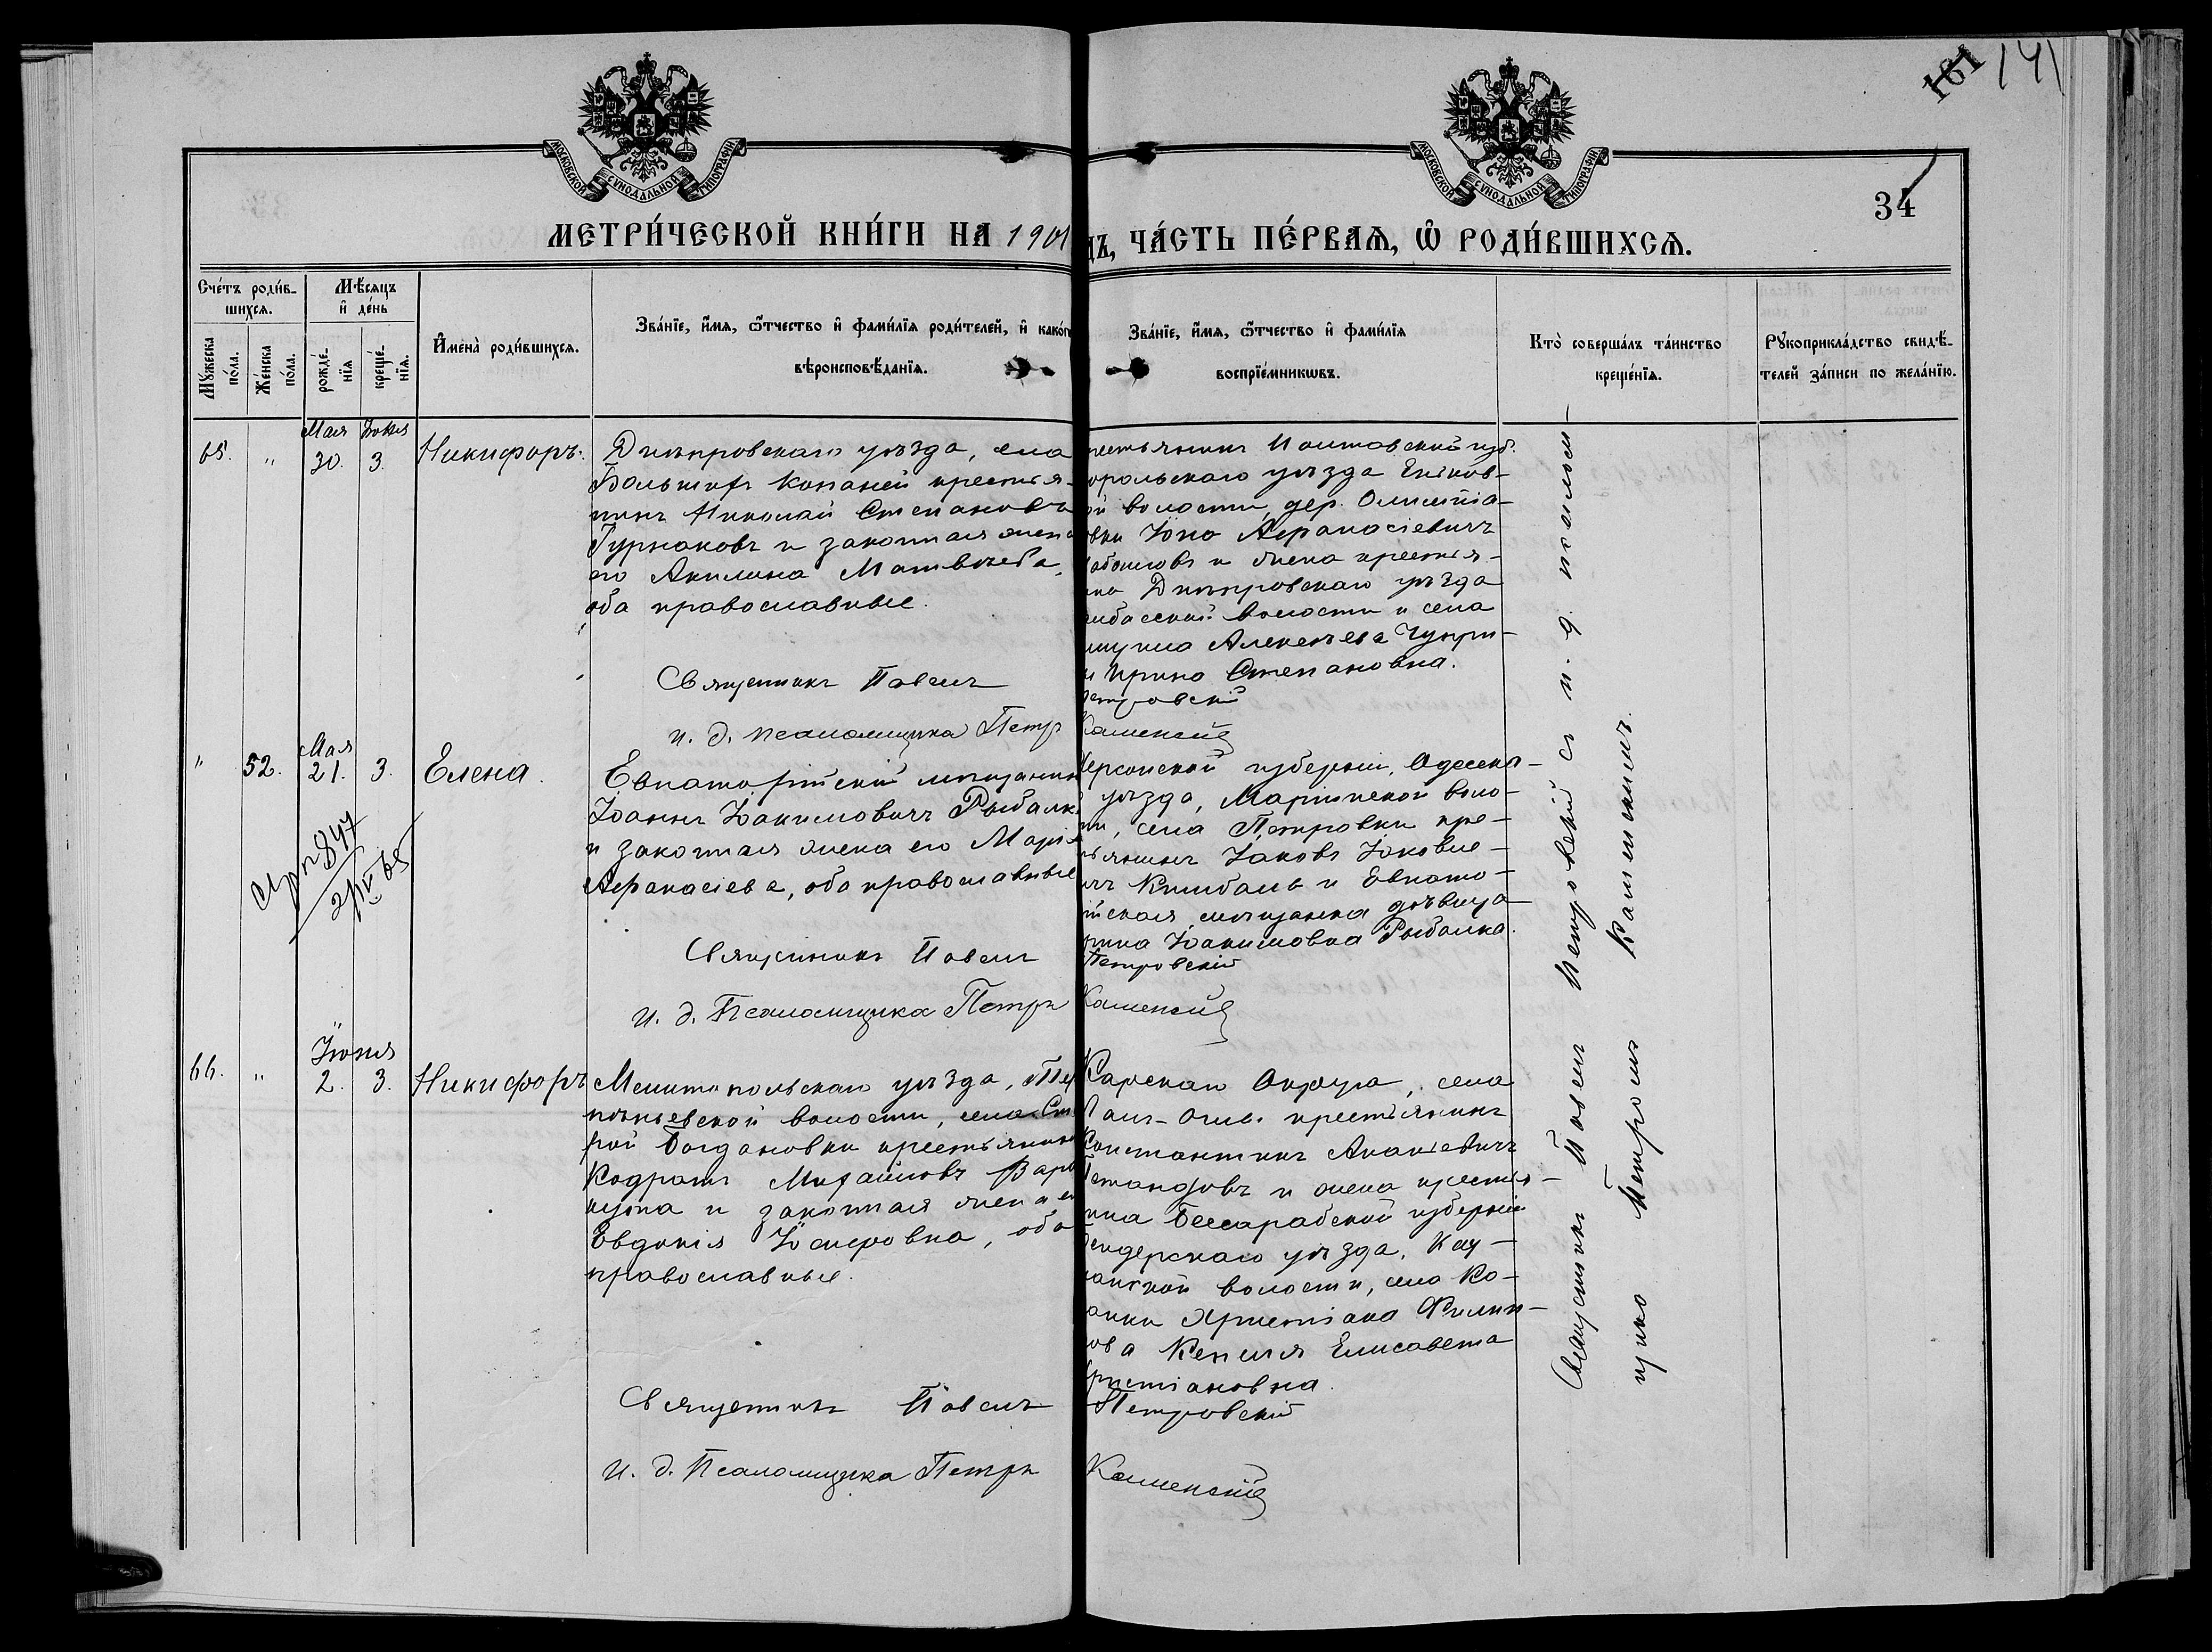 161 141
МОСКОВСКОЙ СУНОДАЛЬНОЙ ТИПОГРАФІИ
МОСКОВСКОЙ СУНОДАЛЬНОЙ ТИПОГРАФІИ
34
МЕТРИ́ЧЕСКОЙ КНИ́ГИ НА 1901
дъ, ЧА́СТЬ ПЕ́РВАЯ, Ѡ РОДИ́ВШИХСЯ.
Сче́тъ роди́в-
шихся.
Мꙋ́жеска по́ла.
Же́нска по́ла.
Мѣ́сяцъ
и҆ де́нь
рожде́-
нїя
креще́-
нїя.
И҆мена̀ роди́вшихся.
Зва́нїе, и҆́мя, ѻ҆́тчество и҆ фами́лїя роди́телей, и҆ како́г
вѣроисповѣ́данїя.
Зва́нїе, и҆́мя, ѻ҆́тчество и҆ фами́лїя
воспрїе́мникѡвъ.
Кто̀ соверша́лъ та́инство
креще́нїя.
Рꙋкоприкла́дство свидѣ́-
телей за́писи по жела́нїю.
65. " Мая 30. Іюня 3. Никифоръ.
Днѣпровскаго уѣзда, села
Большихъ Копаней крестья-
нинъ Николай Степановъ
и законная жена
его Акилина Матвѣева,
оба православные.
Священникъ Павелъ
и. д. псаломщика Петръ
рестьянинъ Полтавской губ.
орольскаго уѣзда
ой волости, дер.
вки Аѳанасіевичъ
и жена крестья-
нка Днѣпровскаго уѣзда
волости и села
Алексѣева
Ирина Степановна.
етровскій
Каменскій
" 52. Мая 21. 3. Елена.
847
2/IV 65
Евпаторійскій мѣщанинъ
Іоаннъ Іоакимовичъ Рыбалк
и законная жена его Марія
Аѳанасіева, оба православные
Священникъ Павелъ
И. д. Псаломщика Петръ
Херсонской губерніи, Одесска-
уѣзда, Маріинской воло-
ти, села Петровки кре-
стьянинъ Іаковъ Іаковле-
вичъ и Евпато-
рійская мѣщанка дѣвица
рина Іоакимовна Рыбалка.
Петровскій
Каменскій
66. " Іюня 2. 3. Никифоръ
Мелитопольскаго уѣзда,
волости, села Ст
рой Богдановки крестьянинъ
Кодратъ Михайловъ
и законная жена ег
Евдокія оба
православные.
Священникъ Павелъ
И. д. Псаломщика Петръ
Карскаго Округа, села
крестьянинъ
Константинъ Акакіевичъ
и жена крестья-
нина Бессарабской губерніи
Бендерскаго уѣзда, Кау-
шанской волости, села
Христіана Филип-
ова Елисавета
Христіановна.
Петровскій
Каменскій
Священникъ Павелъ Петровскій съ и. д. псаломщ
щика Петромъ Каменскимъ.